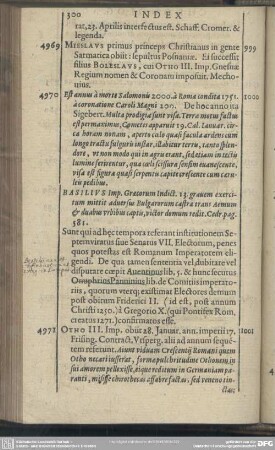 300 INDEX
tat, 23. Aprilis interfectus est. Schaff. Cromer. &
legenda.
4969 MIESLAVS primus princeps Christianus in gente 999
Sarmatica obiit: sepultus Posnaniæ. Ei successit
filius BOLESLAVS, cui OTHO III. Imp. Gnesnæ
Regium nomen & Coronam imposuit. Mecho-
uius.
4970 Est annus à morte Salomonis 2000. à Roma condita 1751. 1000
à coronatione Caroli Magni 200. De hoc anno ita
Sigebert. Multa prodigia sunt visa. Terra motus factus
est permaximus, Cometes apparuit 19. Cal. Ianuar. cir-
ca horam nonam, aperto cælo quasi facula ardens cum
longo tractu fulguris instar, illabitur terris, tanto splen-
dore, vt non modo qui in agris erant, sed etiam in tectis
lumine ferirentur, qua cæli scissura sensim euanescente,
visa est figura quasi serpentis capite crescente cum cæru-
leis pedibus.
BASILIVS Imp. Græcorum Indict. 13. grauem exerci-
tum mittit aduersus Bulgarorum castra trans Aemum
& duabus vrbibus captis, victor domum redit. Cedr. pag.
581.
Sunt qui ad hæc tempora referant institutionem Se-
ptemuiratus siue Senatus VII. Electorum, penes
quos potestas est Romanum Imperatorem eli-
gendi. De qua tamen sententia vel dubitare vel
disputare cœpit Auentinus lib. 5. & hunc secutus
Onuphrius Panuinius lib. de Comitiis imperato-
riis, quorum vterq; existimat Electores demum
post obitum Friderici II. (id est, post annum
Christi 1250.) à Gregorio X. (qui Pontifex Rom.
creatus 1271.) confirmatos esse.
4971 OTHO III. Imp. obiit 28. Ianuar. ann. imperii 17. 1001
Frising. Contract. Vrsperg. alii ad annum seque-
tem referunt. Aiunt viduam Crescentij Romani quem
Otho necari iusserat, forma pellicibus Othonem in
sui amorem pellexisse, eique reditum in Germaniam pa-
ranti, misisse chirothecas affabre factas, sed veneno in-